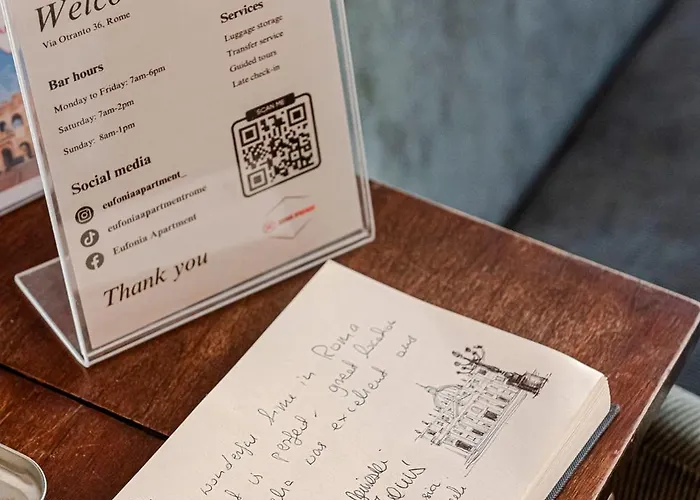 Welco
Via Otranto 36, Rome
Bar hours
Monday to Friday: 7am-6pm
Saturday: 7am-2pm
Sunday: 8am-1pm
Social media
eufoniaapartment_
eufoniaapartmentrome
Eufonia Apartment
Thank you
Services
Luggage storage
Transfer service
Guided tours
Late check-in
SCAN ME
wonderful time in Roma
is perfect. great location
was excellent and